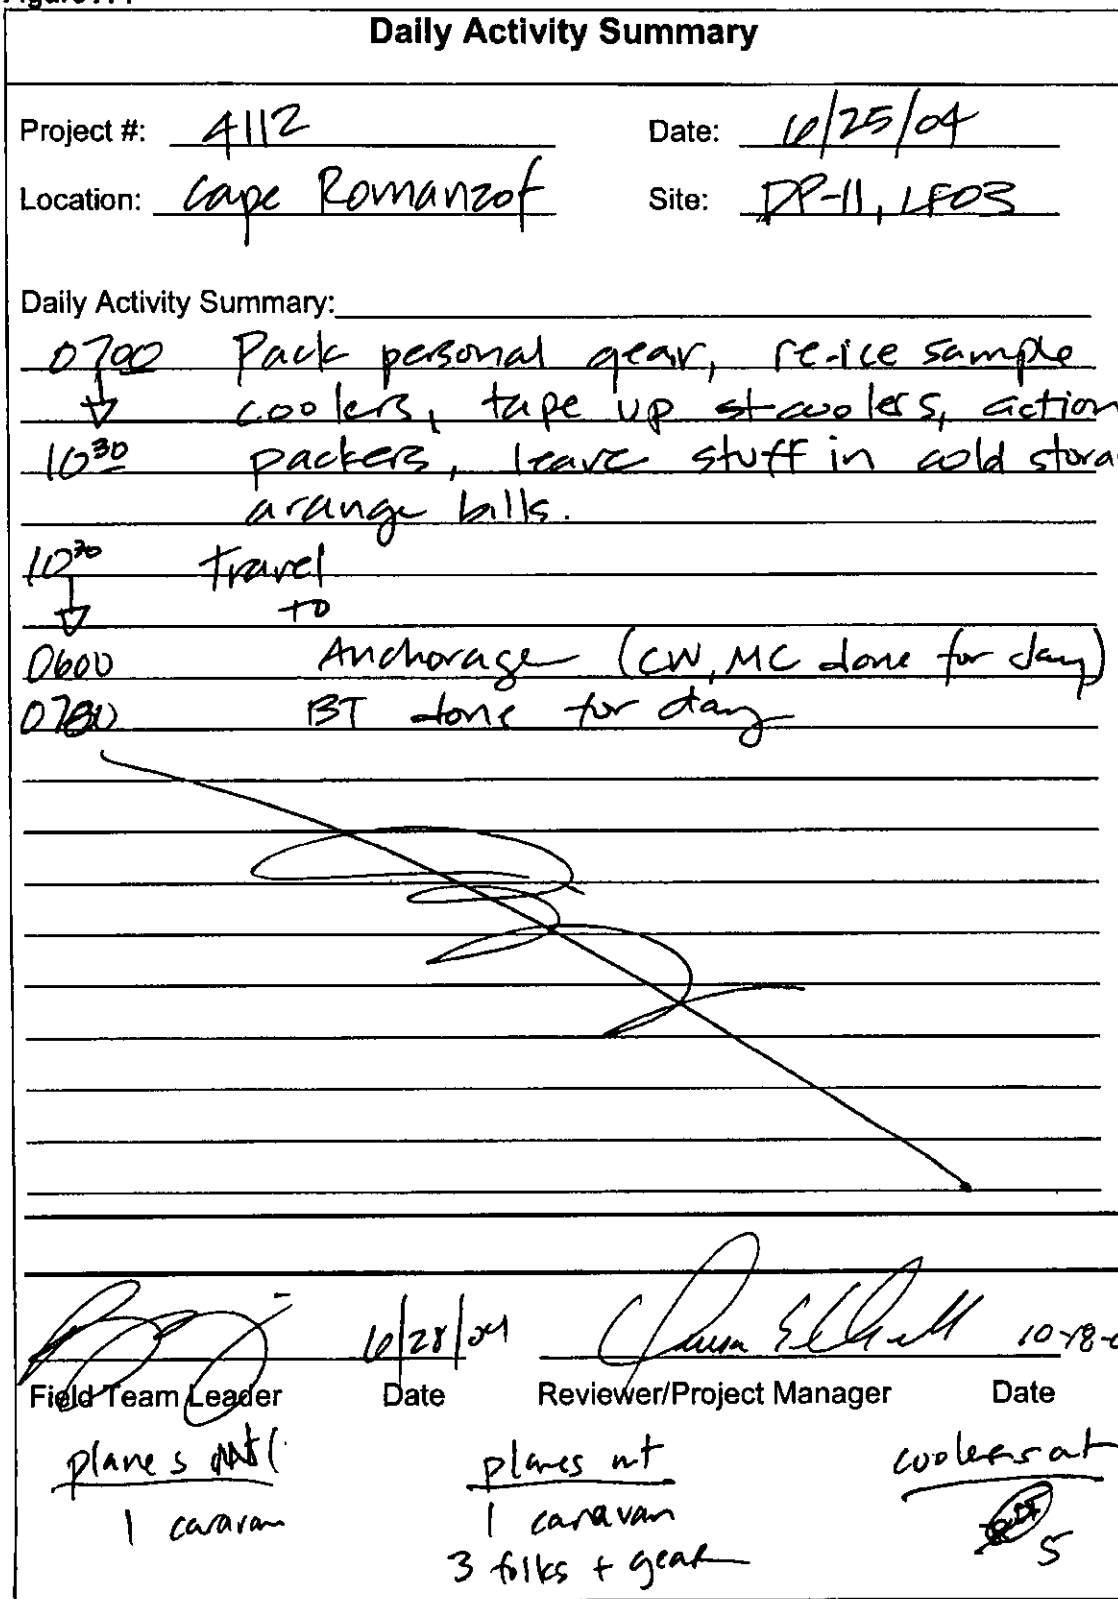 Daily Activity Summary
Project #: 4112 Date: 6/25/04
Location: Cape Romanzof Site: DP-11, LF03
Daily Activity Summary:
0700 Pack personal gear, re-ice sample
coolers, tape up coolers, action
1030 packers, leave stuff in cold stora
arange bills.
1030 travel
to
0600 Anchorage (CW, MC done for day)
BT done for day
6/28/04 10-18-0
Field Team Leader Date Reviewer/Project Manager Date
planes planes coolers out
1 caravan 1 caravan 5
3 folks + gear